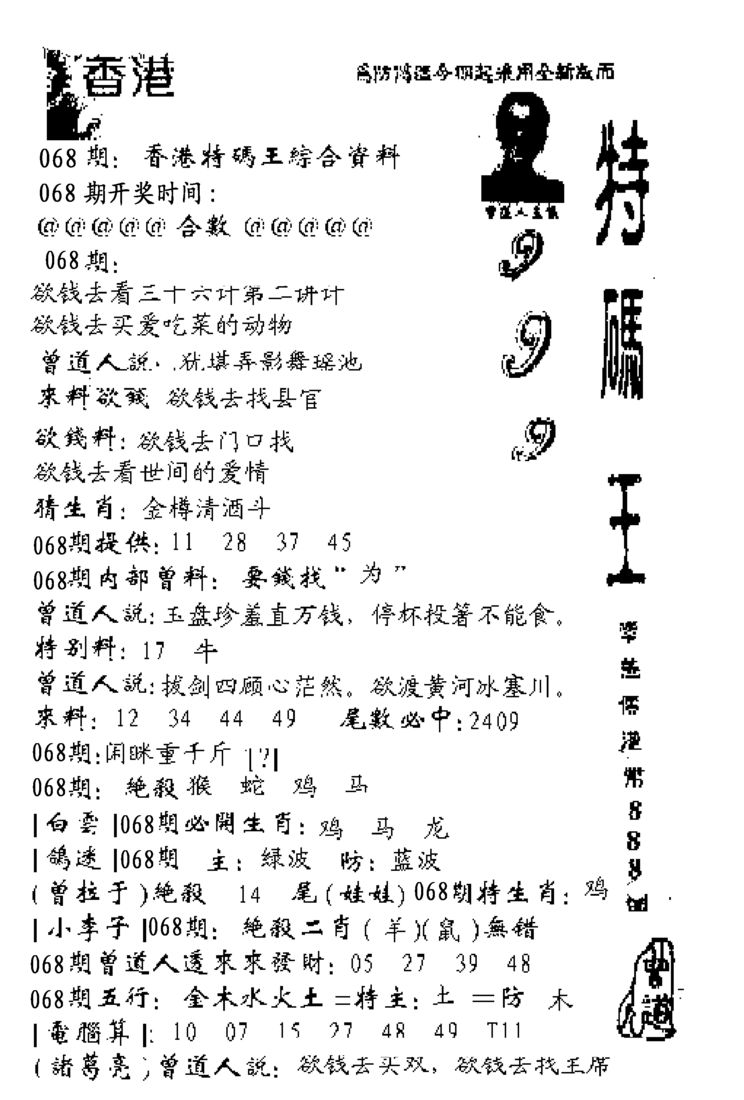 香港
為防 今期起采用全新版面
068期：香港特碼王綜合資料
068期开奖时间：
@@@@@合數@@@@@
068期：
欲钱去看三十六计第二讲计
欲钱去买爱吃菜的动物
曾道人説：.犹堪弄影舞瑶池
來料欲錢 欲钱去找县官
欲錢料：欲钱去门口找
欲钱去看世间的爱情
猜生肖：金樽清酒斗
068期提供：11 28 37 45
068期内部曾料：要錢找“为”
曾道人説：玉盘珍羞直万钱，停杯投箸不能食。
特别料：17 牛
曾道人説：拔剑四顾心茫然。欲渡黄河冰塞川。
來料：12 34 44 49 尾數必中：2409
068期：闲眯重千斤 |?|
068期：絶殺猴 蛇 鸡 马
|白雲|068期必開生肖：鸡 马 龙
|鴿迷|068期 主：绿波 防：蓝波
(曾拉于)絶殺 14 尾(娃娃)068期特生肖：鸡
|小李子|068期：絶殺二肖(羊)(鼠)無錯
068期曾道人透來來發財：05 27 39 48
068期五行：金木水火土=特主：土 =防 木
|電腦算|：10 07 15 27 48 49 T11
(諸葛亮)曾道人説：欲钱去买双，欲钱去找主席
特碼王
999
888
曾道